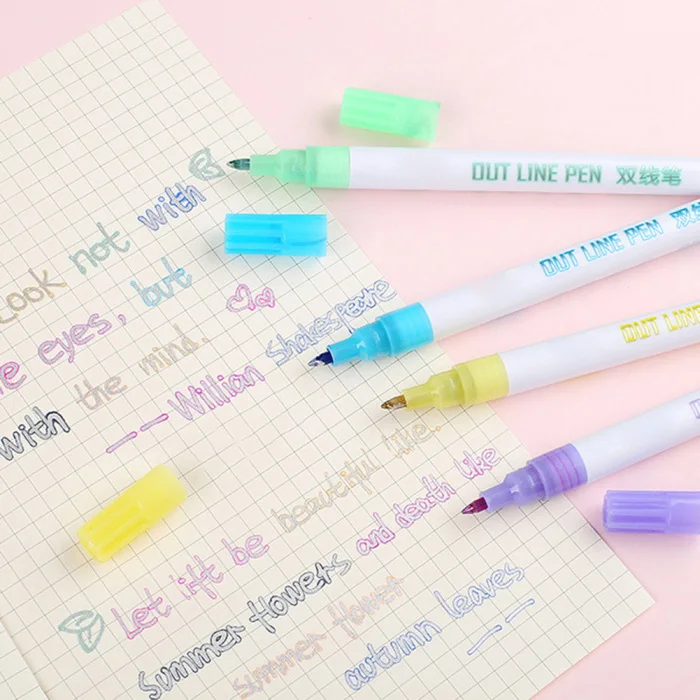 Look not with
the eyes, but
with the mind.
—— Willian Shakespeare
Let lift be beautiful like..
summer flowers and death like
summer flower
autumn leaves
——
OUT LINE PEN 双线笔
OUT LINE PEN 双线
OUT LINE